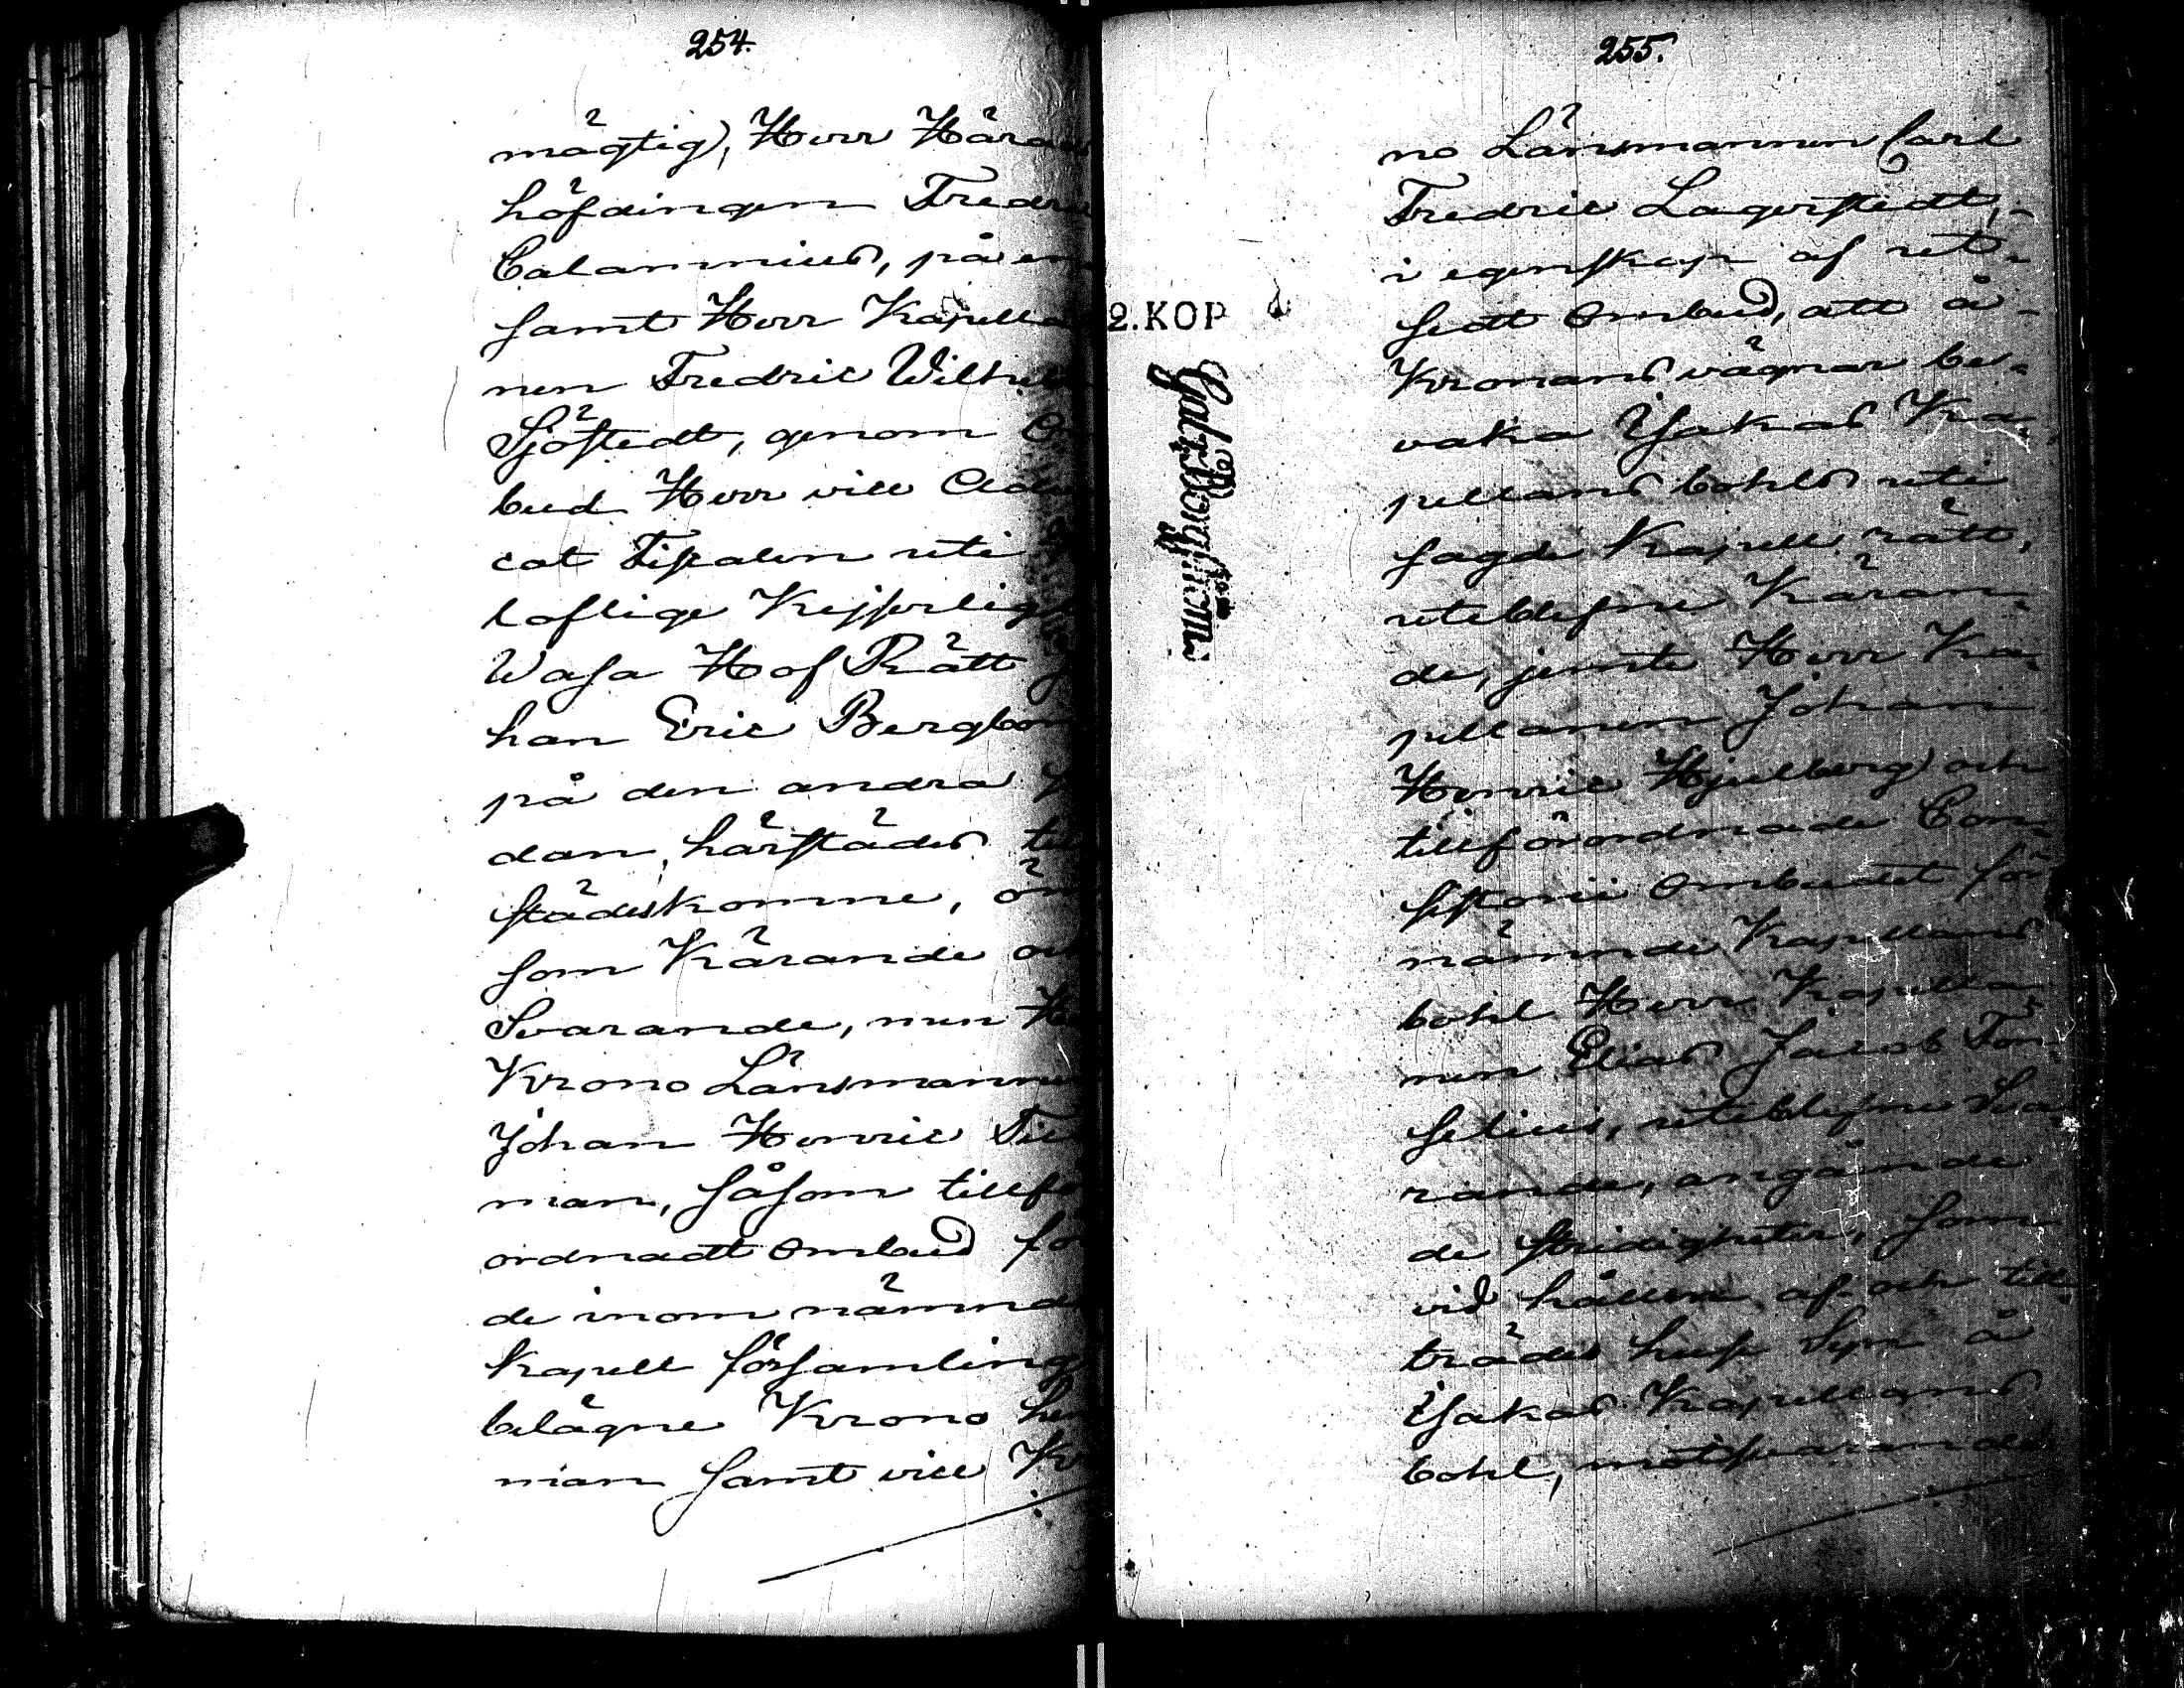 254.
mägtig), Herr Härads
höfdingen Fredric
Calamnius, på en
samt Herr Kapella
nen Fredric Wilhelm
Sjöstedt, genom Om
bud Herr vice Advo
cat Fiskalen uti
Loflige Kejserlige
Wasa Hof Rätt Jo
han Eric Bergbom
på den andra si
dan, härstädes till
städeskomne, öm
som Kärande och
Svarande, men He
Krono Länsmannen
Johan Henric Tic
man, såsom tillför
ordnadt Ombud för
de inom nämnde
Kapell församling
belägne Krono hem
man samt vice Kr
255.
no Länsmannen Carl
Fredric Lagerstedt,
i egenskap af ut-
sedt Ombud, att å
Kronans vägnar be-
vaka Ijakas Ka-
pellans bohls uti
sagde Kapell rätt,
uteblefne Käran-
de, jemte Herr Ka-
pellanen Johan
Henric Hjulberg och
tillförordnade Con-
sistorii Ombudet för
nämnde Kapellans
bohl Herr Kapella-
nen Elias Jacob
uteblefne Sva-
rande, angående
de stridigheter, som
vid hållen af- och till-
trädes huse Syn å
Ijakas Kapellans
bohl, motsvarande
2. KOP